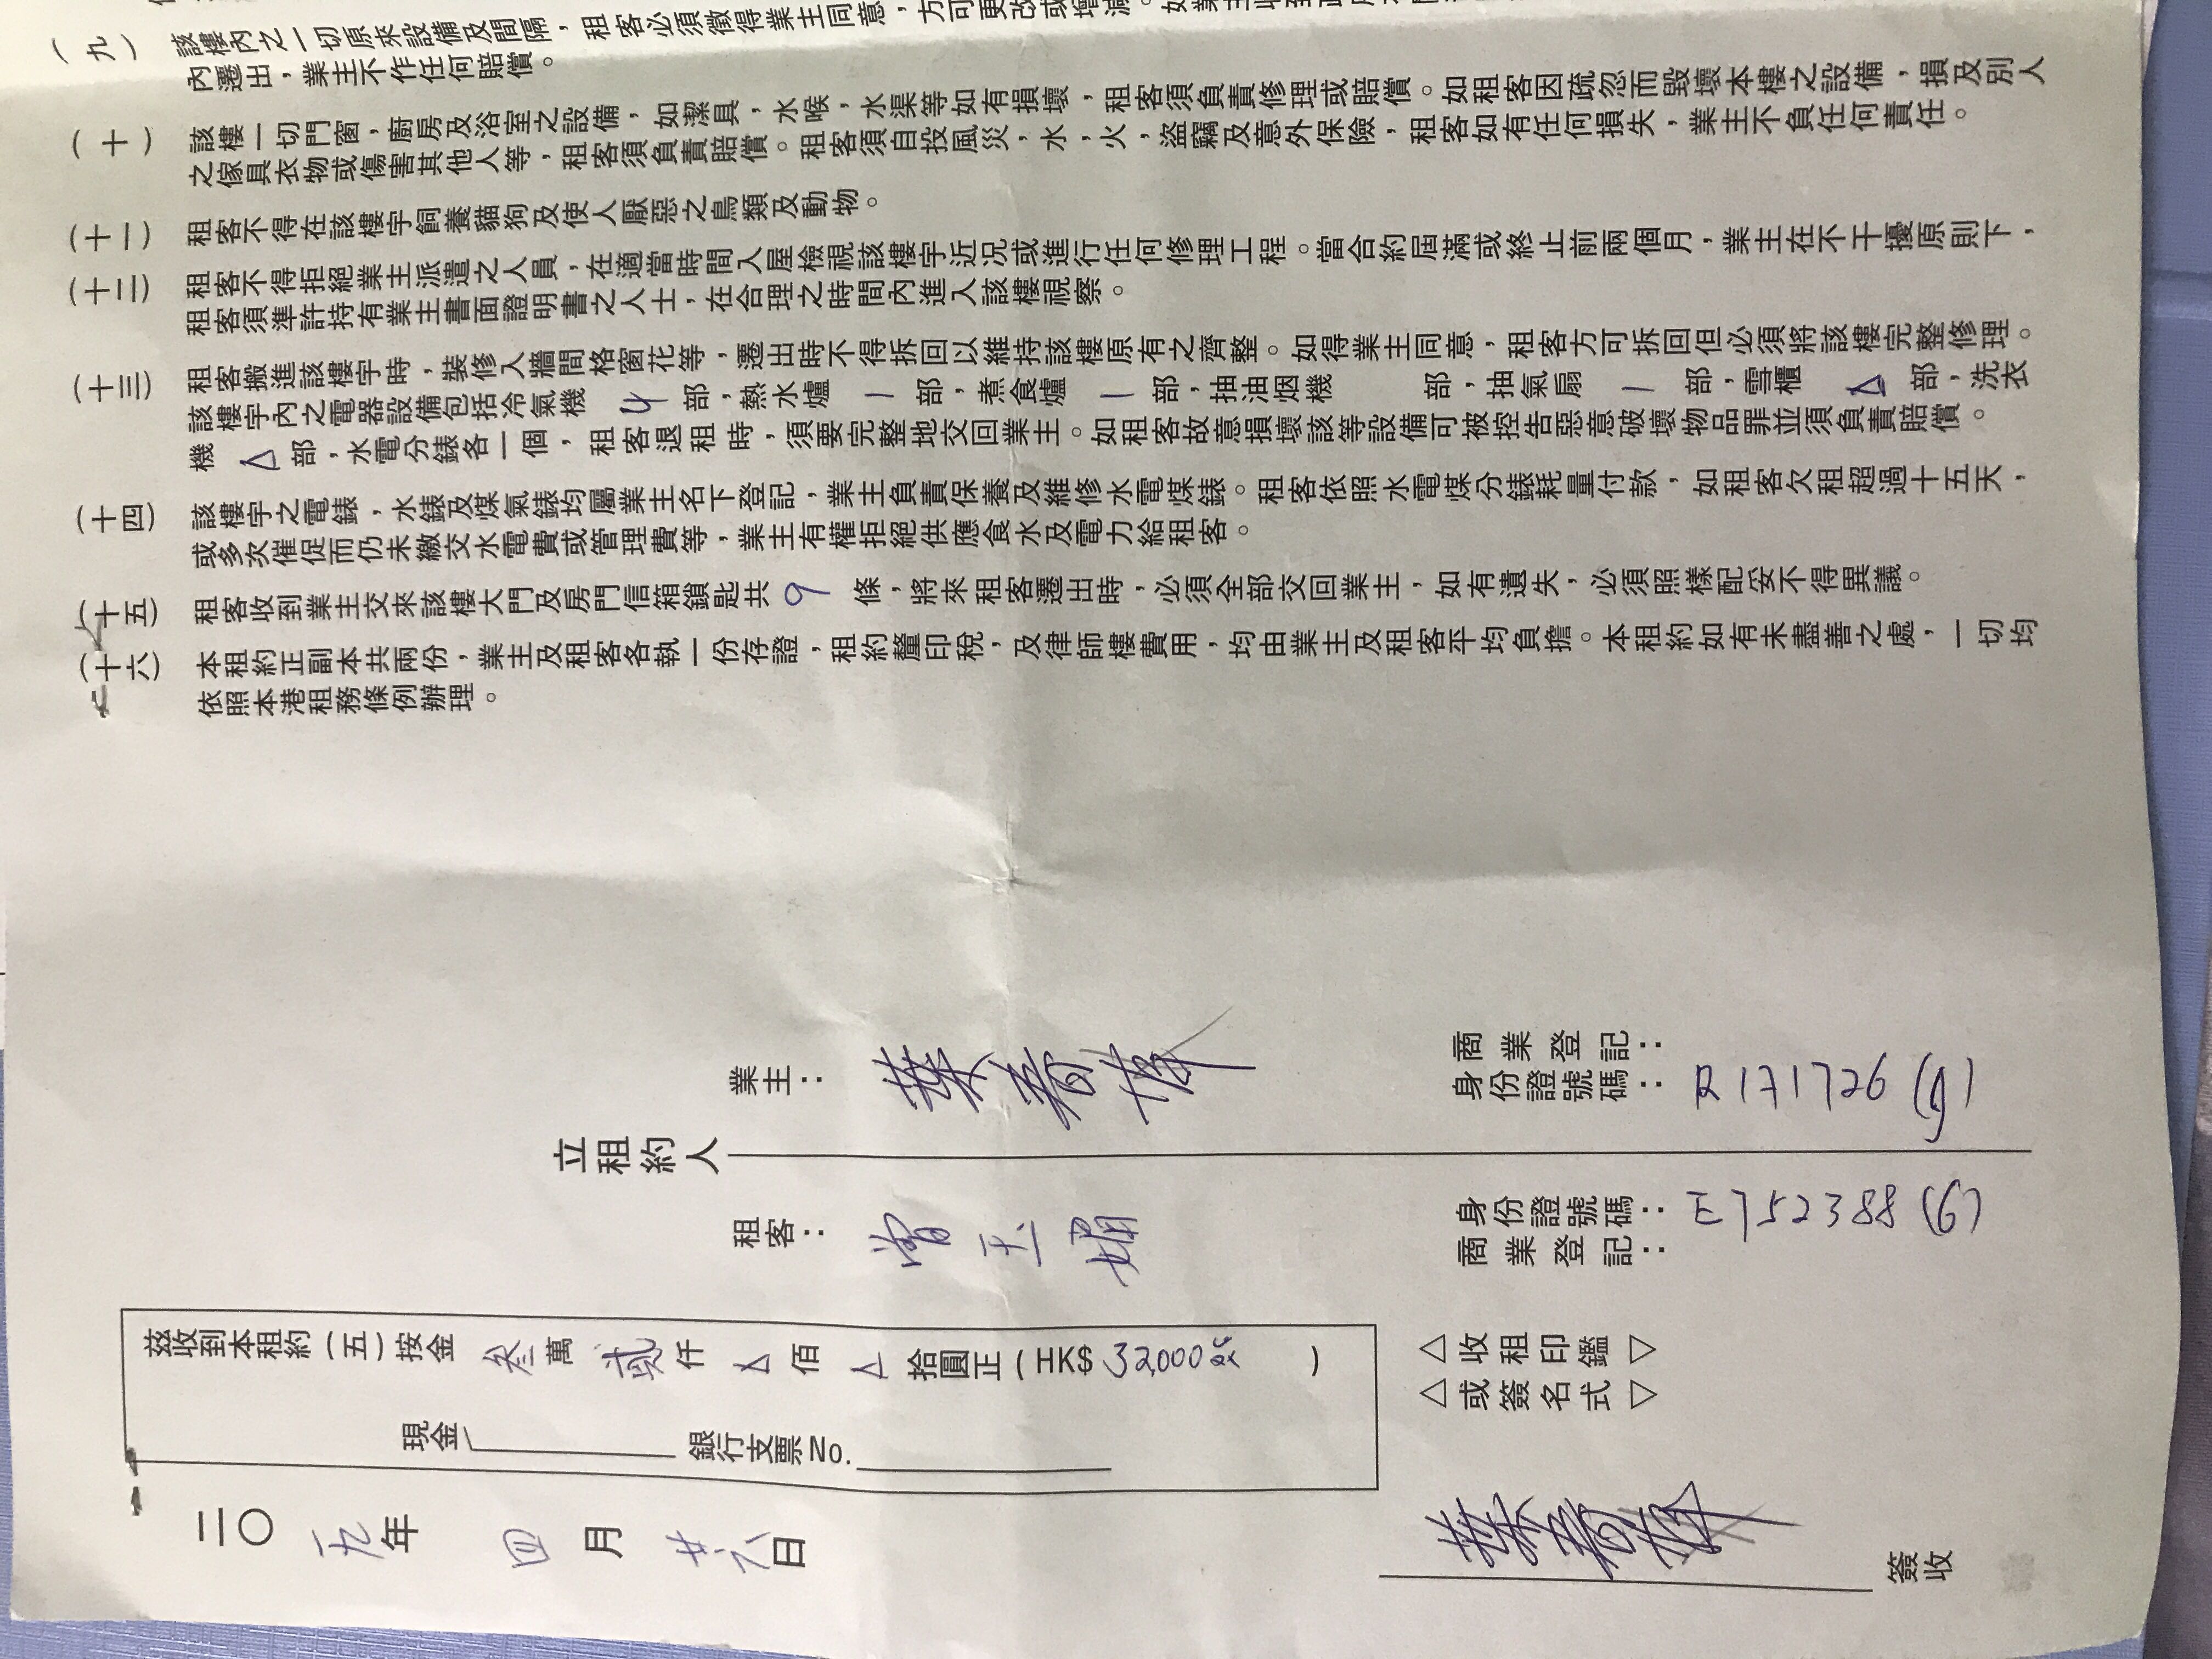 （九） 該樓內之一切原來設備及間隔，租客必須徵得業主同意，方可更改或增減。
內遷出，業主不作任何賠償。
（十） 該樓一切門窗，廚房及浴室之設備，如潔具，水喉，水渠等如有損壞，租客須負責修理或賠償。如租客因疏忽而毀壞本樓之設備，損及別人
之傢具衣物或傷害其他人等，租客須負責賠償。租客須自投風災，水，火，盜竊及意外保險，租客如有任何損失，業主不負任何責任。
（十一） 租客不得在該樓宇飼養貓狗及使人厭惡之鳥類及動物。
（十二） 租客不得拒絕業主派遣之人員，在適當時間入屋檢視該樓宇近況或進行任何修理工程。當合約屆滿或終止前兩個月，業主在不干擾原則下，
租客須準許持有業主書面證明書之人士，在合理之時間內進入該樓視察。
（十三） 租客搬進該樓宇時，裝修入牆間格窗花等，遷出時不得拆回以維持該樓原有之齊整。如得業主同意，租客方可拆回但必須將該樓完整修理。
該樓宇內之電器設備包括冷氣機 4 部，熱水爐 1 部，煮食爐 1 部，抽油烟機 部，抽氣扇 1 部，雪櫃 △ 部，洗衣
機 △ 部，水電分錶各一個，租客退租時，須要完整地交回業主。如租客故意損壞該等設備可被控告惡意破壞物品罪並須負責賠償。
（十四） 該樓宇之電錶，水錶及煤氣錶均屬業主名下登記，業主負責保養及維修水電煤錶。租客依照水電煤分錶耗量付款，如租客欠租超過十五天，
或多次催促而仍未繳交水電費或管理費等，業主有權拒絕供應食水及電力給租客。
（十五） 租客收到業主交來該樓大門及房門信箱鎖匙共 9 條，將來租客遷出時，必須全部交回業主，如有遺失，必須照樣配妥不得異議。
（十六） 本租約正副本共兩份，業主及租客各執一份存證，租約釐印稅，及律師樓費用，均由業主及租客平均負擔。本租約如有未盡善之處，一切均
依照本港租務條例辦理。
立租約人
業主：
商業登記：
身份證號碼： R171726(9)
租客： 曾玉媚
身份證號碼： E752388(6)
商業登記：
茲收到本租約（五）按金 叁萬 貳仟 △佰 △拾圓正（HK$ 32,000 ）
現金 銀行支票No.
△收租印鑑▽
△或簽名式▽
二〇一九年 四月 廿八日
簽收